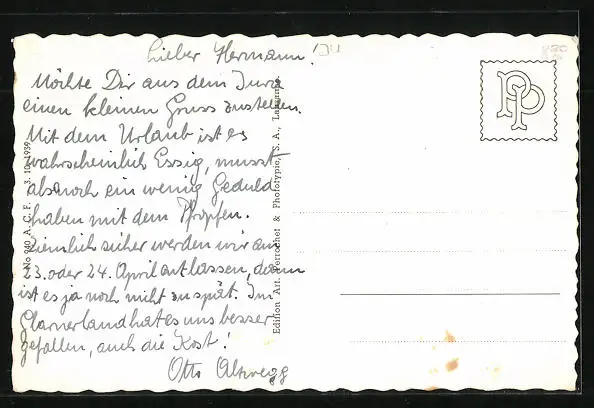 Lieber Hermann!
Möchte Dir aus dem Jura
einen kleinen Gruss zustellen.
Mit dem Urlaub ist es
wahrscheinlich Essig, musst
also noch ein wenig Geduld
haben mit dem Pfropfen.
Ziemlich sicher werden wir am
23. oder 24. April entlassen, dann
ist es ja noch nicht zu spät. Im
Glarnerland hat es uns besser
gefallen, auch die Kost!
Otto Altwegg
No 940 A. C. F. 3. 10. 1939
Edition Art. Perrochet & Phototypie, S. A., Lausanne
PP